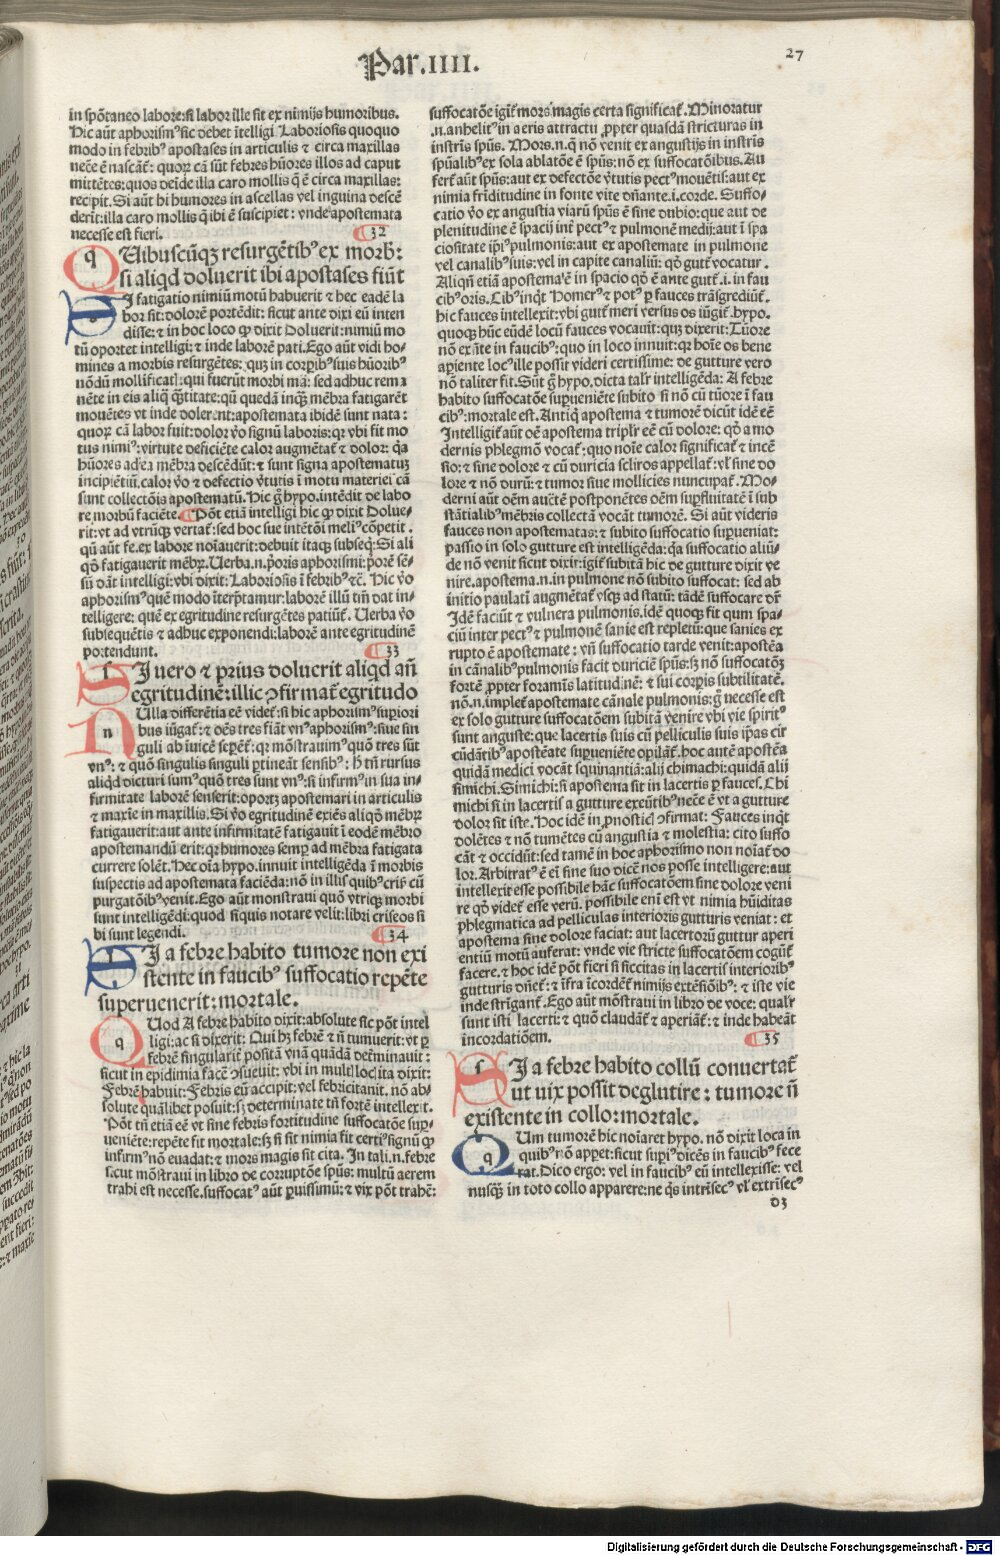 Par.IIII.
27
in spōtaneo labore: si labor ille fit ex nimijs humoribus.
Hic aūt aphorismꝰ sic debet ītelligi Laboriosis quoquo
modo in febribꝰ apostases in articulis ⁊ circa maxillas
necē̄ē ē nascāt̄: quoꝝ cā sūt febres hūores illos ad caput
mittētes: quos deīde illa caro mollis q̄ ē circa maxillas:
recipit. Si aūt hi humores in ascellas vel inguina descē
derīt: illa caro mollis q̄ ibi ē suscipiet: vnde apostemata
necesse est fieri.
32
QUibuscūqꝫ resurgētibꝰ ex morb̄:
si aliqd doluerit ibi apostases fiūt
SI fatigatio nimiū motū habuerit ⁊ hec eadē la
bor sit: dolorē portēdit: sicut ante dixi eū inten
disse: ⁊ in hoc loco ꝙ dixit Doluerit: nimiū mo
tū oportet intelligi: ⁊ inde laborē pati. Ego aūt vidi ho-
mines a morbis resurgētes: quꝫ in corpibꝰ suis hūoribꝰ
nōdū mollificat̄: qui fuerūt morbi mā: sed adhuc rema
nēte in eis aliq̄ q̄̄titate: qū quedā inqꝫ mēbra fatigarēt
mouētes vt inde dolerent: apostemata ibidē sunt nata:
quoꝝ cā labor fuit: dolor ṽo signū laboris: qꝛ vbi fit mo
tus nimiꝰ: virtute deficiēte calor augmētat̄ ⁊ dolor: q̄a
hūores ad ea mēbra descēdūt: ⁊ sunt signa apostematuꝫ
incipiētiū. calor ṽo ⁊ defectio ṽtutis ī motu materiei cā
sunt collectōis apostematū. Hic g̊ hypo. intēdit de labo
re morbū faciēte. Pōt etiā intelligi hic ꝙ dixit Dolue-
rit: vt ad vtrūqꝫ vertat̄: sed hoc sue intētōi meliꝰ cōpetit.
qū aūt fe. ex labore noīauerit: debuit itaqꝫ subseq̄: Si ali
qd̄ fatigauerit mēbꝝ. Uerba. n. p̄oris aphorismi: p̄orē sē-
sū dāt intelligi: vbi dixit: Laboriosis ī febribꝰ ⁊c̄. Hic ṽo
aphorismꝰ quē modo īterp̄tamur: laborē illū tm̄ dat in-
telligere: quē ex egritudine resurgētes patiūt̄. Uerba ṽo
subsequētis ⁊ adhuc exponendi: laborē ante egritudinē
portendunt.
33
SI uero ⁊ prius doluerit aliqd añ
egritudinē: illic ꝯfirmat̄ egritudo
NUlla differētia eē videt̄: si hic aphorismꝰ suꝑiori
bus iūgat̄: ⁊ oēs tres fiāt vnꝰ aphorismꝰ: siue sin
guli ab iuicē seꝑēt̄: qꝛ mōstrauimꝰ quō tres sūt
vnꝰ: ⁊ quō singulis singuli ꝑtineāt sensibꝰ: h̄ tn̄ rursus
aliqd dicturi sumꝰ quō tres sunt vnꝰ: si infirmꝰ in sua in-
firmitate laborē senserit: oportꝫ apostemari in articulis
⁊ maxīe in maxillis. Si ṽo egritudinē exiēs aliqd̄ mēbꝝ
fatigauerit: aut ante infirmitatē fatigauit ī eodē mēbro
apostemandū erit: qꝛ humores semꝑ ad mēbra fatigata
currere solēt. Hec oīa hypo. innuit intelligēda ī morbis
suspectis ad apostemata faciēda: nō in illis quibꝰ crisꝫ cū
purgatōibꝰ venit. Ego aūt monstraui quō vtriqꝫ morbi
sunt intelligēdi: quod si quis notare velit: libri criseos si
bi sunt legendi.
34
SI a febre habito tumore non exi
stente in faucibꝰ suffocatio repēte
superuenerit: mortale.
QUod A febre habito dixit: absolute sic pōt intel
ligi: ac si dixerit: Qui hꝫ febrē ⁊ ñ tumuerit: vt ꝑ
febrē singularit̄ positā vnā quādā det̄minauit:
sicut in epidimia facē ꝯsueuit: vbi in mult̄ loc̄ ita dixit:
Febrē habuit: Febris eū accipit. vel febricitanit. nō ab-
solute quālibet posuit: sꝫ determinate tñ fortē intellexit.
Pōt tñ etiā eē vt sine febris fortitudine suffocatōe suꝑ-
ueniēte: repēte fit mortale: sꝫ si sit nimia fit certiꝰ signū ꝙ
infirmꝰ nō euadat: ⁊ mors magis sit cita. In tali. n. febre
sicut mōstraui in libro de corruptōe spūs: multū aerem
trahi est necesse. suffocat̄ aūt ꝑuissimū: ⁊ vix pōt trahē:
suffocatōe igit̄ mors magis certa significat̄. Minoratur
.n. anhelitꝰ in aeris attractu ꝓpter quasdā stricturas in
instrīs spūs. Mors. n. q̄ nō venit ex angustijs in instrīs
spūalibꝰ ex sola ablatōe ē spūs: nō ex suffocatōibus. Au
fert̄ aūt spūs: aut ex defectōe ṽtutis pectꝰ mouētis: aut ex
nimia frīditudine in fonte vite dn̄ante. i. corde. Suffo-
catio ṽo ex angustia viarū spūs ē sine dubio: que aut de
plenitudine ē spacij int̄ pectꝰ ⁊ pulmonē medij: aut ī spa
ciositate ip̄iꝰ pulmonis: aut ex apostemate in pulmone
vel canalibꝰ suis: vel in capite canaliū: qd̄ gutt̄ vocatur.
Aliqn̄ etiā apostema ē in spacio qd̄ ē ante gutt̄. i. in fau
cibꝰ oris. Cibꝰ inq̄t Homerꝰ ⁊ potꝰ ꝑ fauces trāsgrediūt̄.
hic fauces intellexit: vbi gutt̄ meri versus os iūgit̄. hypo.
quoqꝫ hūc eūdē locū fauces vocauit: quꝫ dixerit: Tūore
nō exn̄te in faucibꝰ: quo in loco innuit: qꝛ hoīe os bene
aꝑiente locꝰ ille possit videri certissime: de gutture vero
nō taliter fit. Sūt g̊ hypo. dicta talr̄ intelligēda: A febre
habito suffocatōe suꝑueniēte subito si nō cū tūore ī fau
cibꝰ: mortale est. Antiq̄ apostema ⁊ tumorē dicūt idē eē
Intelligūt aūt oē apostema triplr̄ eē cū dolore: qd̄ a mo
dernis phlegmō vocat̄: quo noīe calor significat̄ ⁊ incē
sio: ⁊ sine dolore ⁊ cū duricia scliros appellat̄: vl̄ sine do
lore ⁊ nō durū: ⁊ tumor siue mollicies nuncupat̄. Mo-
derni aūt oēm auctē postponētes oēm suꝑfluitatē ī sub
stātialibꝰ mēbris collectā vocāt tumorē. Si aūt videris
fauces non apostematas: ⁊ subito suffocatio suꝑueniat:
passio in solo gutture est intelligēda: q̄a suffocatio aliū-
de nō venit sicut dixit: igit̄ subitā hic de gutture dixit ve
nire. apostema. n. in pulmone nō subito suffocat: sed ab
initio paulatī augmētat̄ vsqꝫ ad statū: tādē suffocare dr̄
Idē faciūt ⁊ vulnera pulmonis. idē quoqꝫ fit qum spa-
ciū inter pectꝰ ⁊ pulmonē sanie est repletū: que sanies ex
rupto ē apostemate: vñ suffocatio tarde venit: apostēa
in cānalibꝰ pulmonis facit duriciē spūs: sꝫ nō suffocatōꝫ
fortē ꝓpter foramīs latitudinē: ⁊ sui corꝑis subtilitatē.
nō. n. implet̄ apostemate cānale pulmonis: g̊ necesse est
ex solo gutture suffocatōem subitā venire vbi vie spiritꝰ
sunt anguste: que lacertis suis cū pelliculis suis ip̄as cir
cūdātibꝰ apostēate suꝑueniēte opilāt̄. hoc autē apostēa
quidā medici vocāt squinantiā: alij chimachi: quidā alij
simichi. Simichi: si apostema sit in lacertis ꝑ fauces. Chi
michi si in lacertis a gutture exeūtibꝰ necē ē vt a gutture
dolor sit iste. Hoc idē in ꝓnosticꝭ ꝯfirmat: Fauces inq̄t
dolētes ⁊ nō tumētes cū angustia ⁊ molestia: cito suffo
cāt ⁊ occidūt: sed tamē in hoc aphorismo non noīat̄ do
lor. Arbitratꝰ ē eī sine suo dicē nos posse intelligere: aut
intellexit esse possibile hāc suffocatōem sine dolore veni
re qd̄ videt̄ esse verū. possibile enī est vt nimia hūiditas
phlegmatica ad pelliculas interioris gutturis veniat: et
apostema sine dolore faciat: aut lacertorū guttur aperi
entiū motū auferat: vnde vie stricte suffocatōem cogūt̄
facere. ⁊ hoc idē pōt fieri si siccitas in lacertis interioribꝰ
gutturis dn̄et̄: ⁊ īfra īcordēt̄ nimijs extēsiōibꝰ: ⁊ iste vie
inde strīgant̄. Ego aūt mōstraui in libro de voce: qualr̄
sunt isti lacerti: ⁊ quō claudāt̄ ⁊ aperiāt̄: ⁊ inde habeāt
incordatiōem.
35
SI a febre habito collū conuertat̄
ut uix possit deglutire: tumore ñ
existente in collo: mortale.
QUm tumorē hic noīaret hypo. nō dixit loca in
quibꝰ nō appet: sicut supiꝰ dicēs in faucibꝰ fece
rat. Dico ergo: vel in faucibꝰ eū intellexisse: vel
nusq̄ꝫ in toto collo apparere: ne q̄s intrīsecꝰ vl̄ extrīsecꝰ
d3
Digitalisierung gefördert durch die Deutsche Forschungsgemeinschaft - DFG